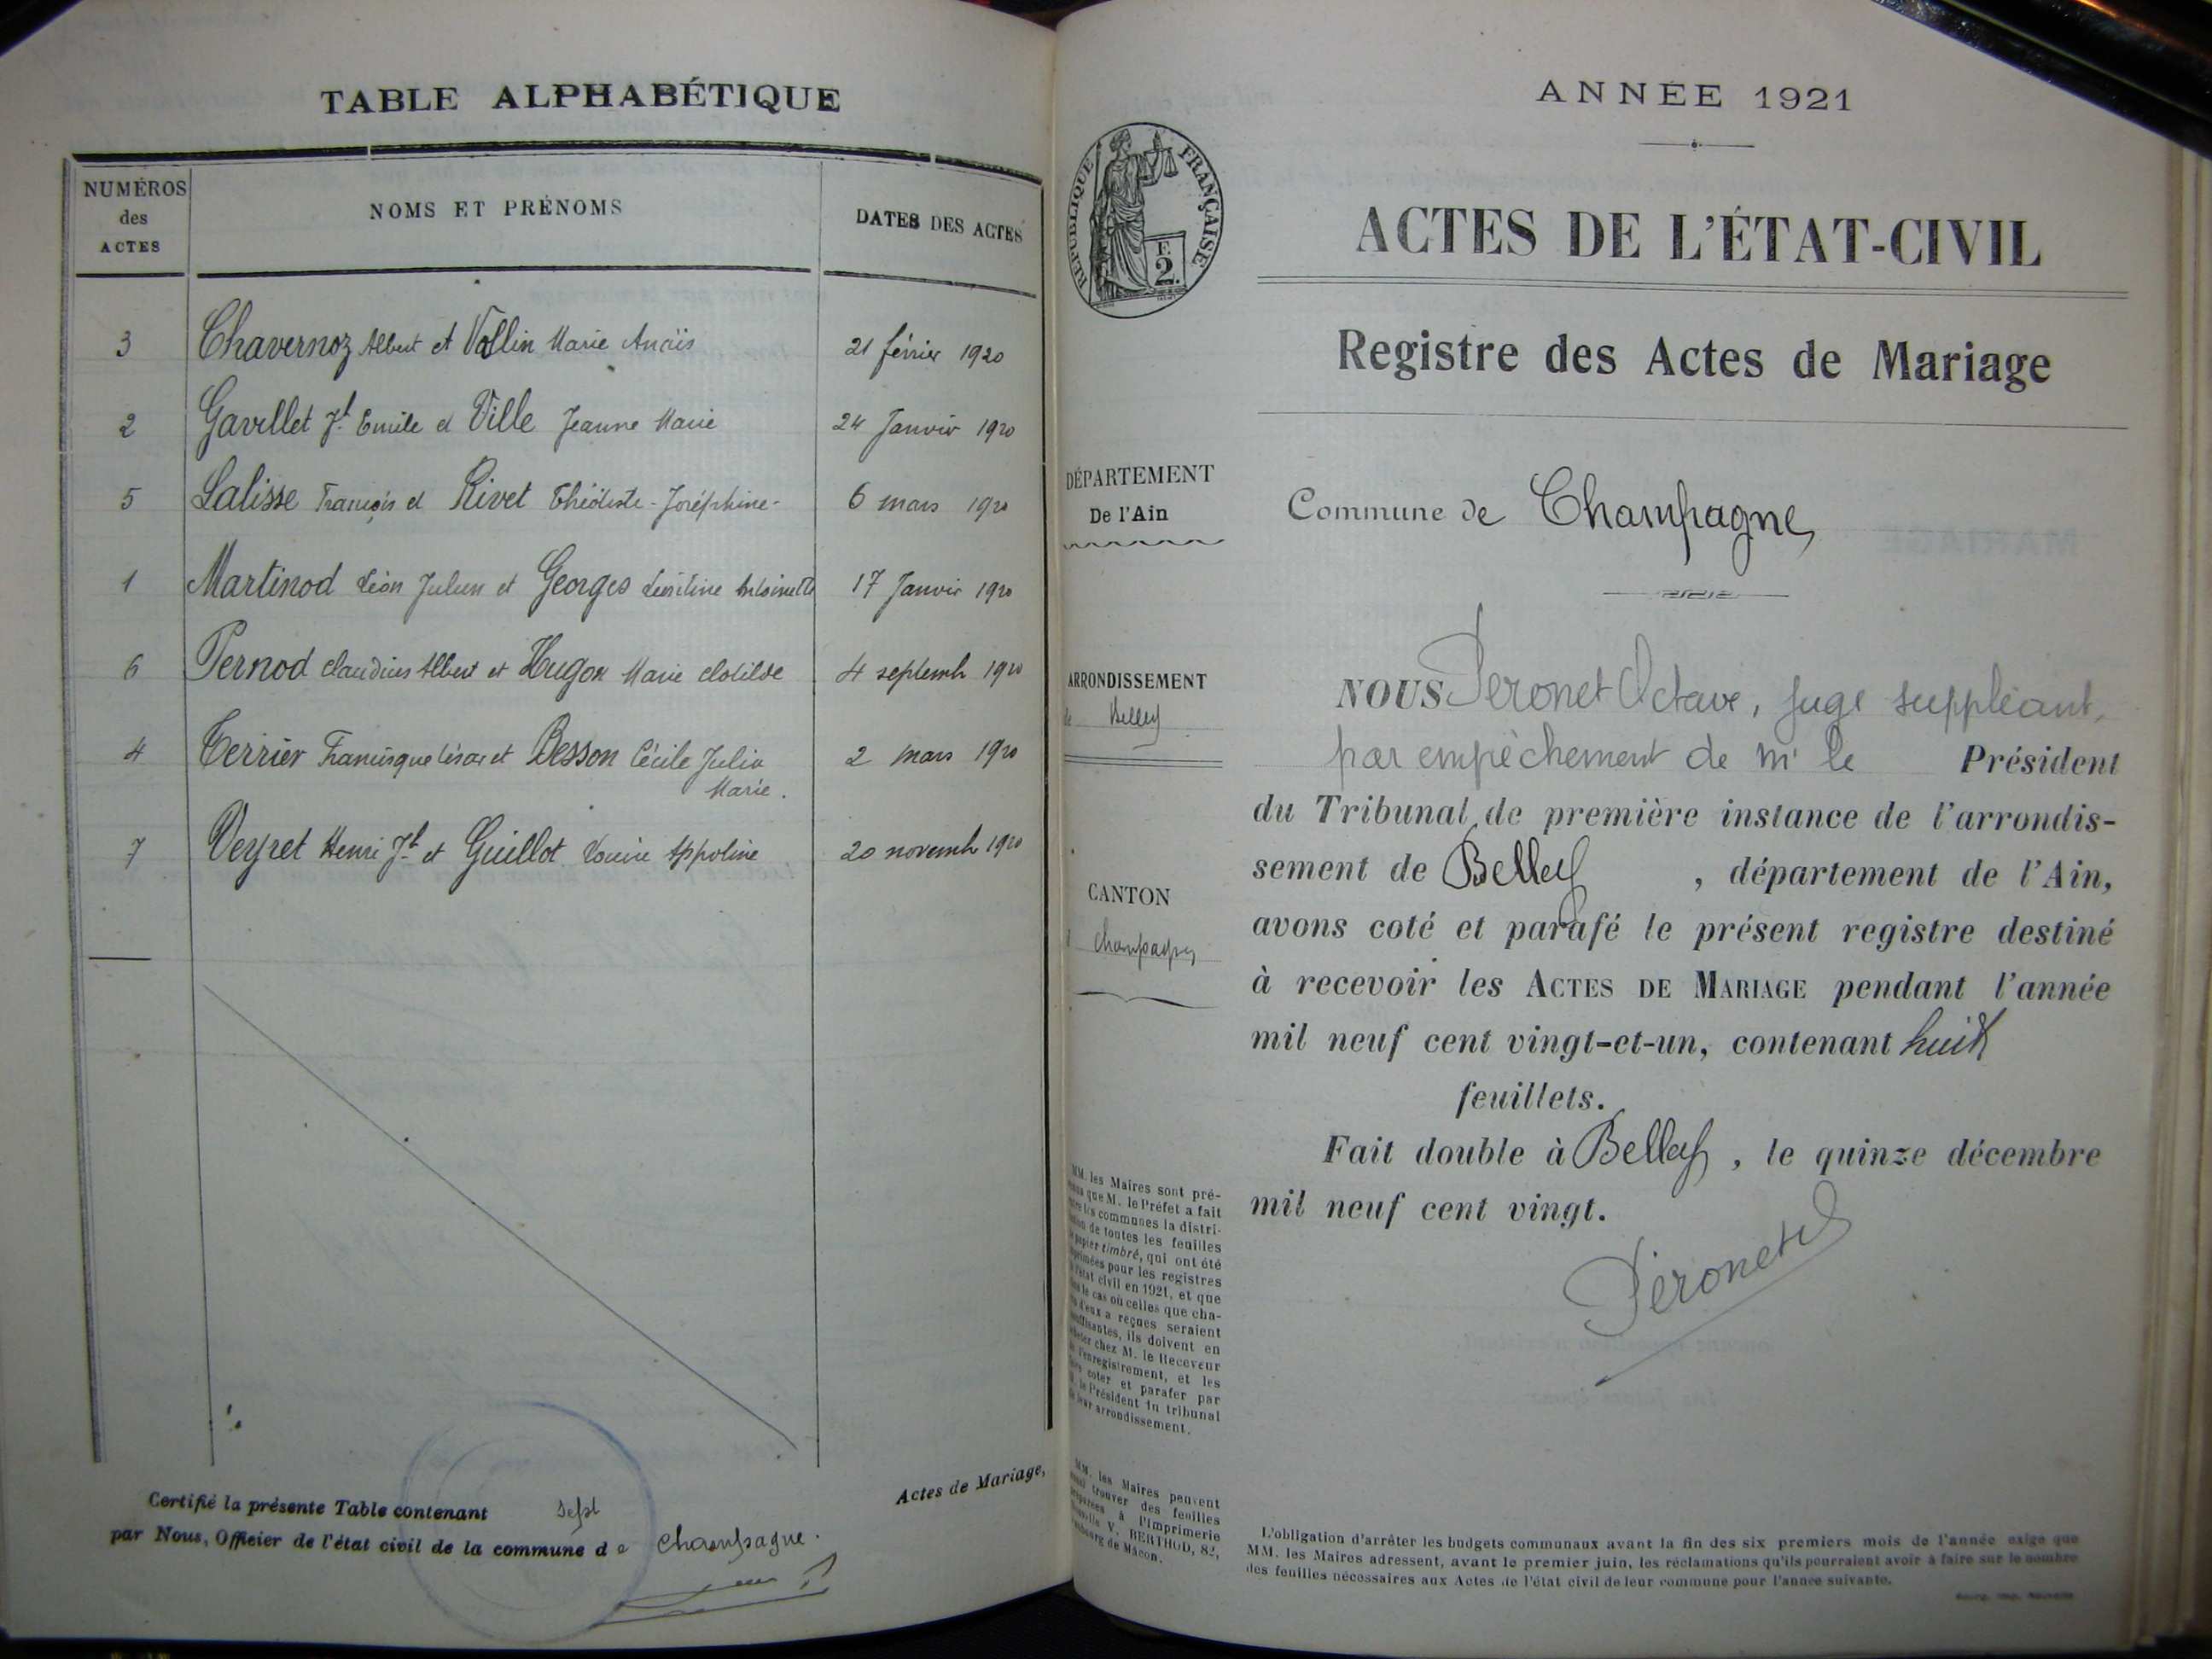 TABLE ALPHABÉTIQUE
NUMÉROS
des
ACTES
NOMS ET PRÉNOMS
DATES DES ACTES
3 Chavernoz Albert et Vollin Marie Anaïs 21 février 1920
2 Gavillet Jh Emile et Ville Jeanne Marie 24 Janvier 1920
5 Lalisse François et Rivet Théotiste-Joséphine- 6 mars 1920
1 Martinod Léon Julien et Georges Léontine Antoinette 17 Janvier 1920
6 Pernod Claudius Albert et Hugon Marie Clotilde 4 septemb 1920
4 Terrier Francisque César et Besson Cécile Julia 2 mars 1920
Marie.
7 Veyret Henri Jh et Guillot Louise Appoline 20 novemb 1920
Certifié la présente Table contenant sept Actes de Mariage,
par Nous, Officier de l'état civil de la commune de Champagne.
ANNÉE 1921
RÉPUBLIQUE FRANÇAISE
F.
2.
ACTES DE L'ÉTAT-CIVIL
Registre des Actes de Mariage
DÉPARTEMENT
De l'Ain
Commune de Champagne
ARRONDISSEMENT
de Belley
CANTON
Champagne
NOUS Peronet Octave, juge suppléant,
par empêchement de Mr le Président
du Tribunal de première instance de l'arrondis-
sement de Belley , département de l'Ain,
avons coté et parafé le présent registre destiné
à recevoir les ACTES DE MARIAGE pendant l'année
mil neuf cent vingt-et-un, contenant huit
feuillets.
Fait double à Belley, le quinze décembre
mil neuf cent vingt.
Péronet
MM. les Maires sont pré-
que M. le Préfet a fait
les communes la distri-
de toutes les feuilles
papier timbré, qui ont été
pour les registres
état civil en 1921, et que
le cas où celles que cha-
d'eux a reçues seraient
ils doivent en
chez M. le Receveur
l'enregistrement, et les
coter et parafer par
le Président du tribunal
de leur arrondissement.
MM. les Maires peuvent
trouver des feuilles
à l'Imprimerie
V. BERTHOD, 82,
de Mâcon.
L'obligation d'arrêter les budgets communaux avant la fin des six premiers mois de l'année exige que
MM. les Maires adressent, avant le premier juin, les réclamations qu'ils pourraient avoir à faire sur le nombre
des feuilles nécessaires aux Actes de l'état civil de leur commune pour l'année suivante.